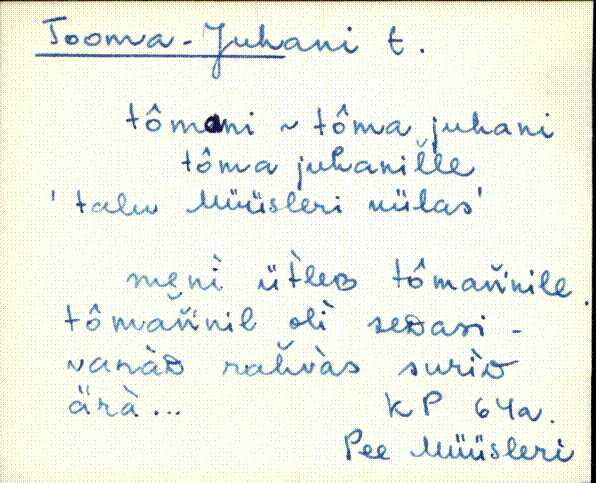 Tooma-Juhani t.
tômani ~ tôma juhani
tôma juhanil̆le
' talu Müüsleri külas'
meni ütleʙ tômañ'nile.
tômañ'nil oli seᴅasi -
vanàᴅ rahvàs suriᴅ
ärà...
KP 64a.
Pee Müüsleri